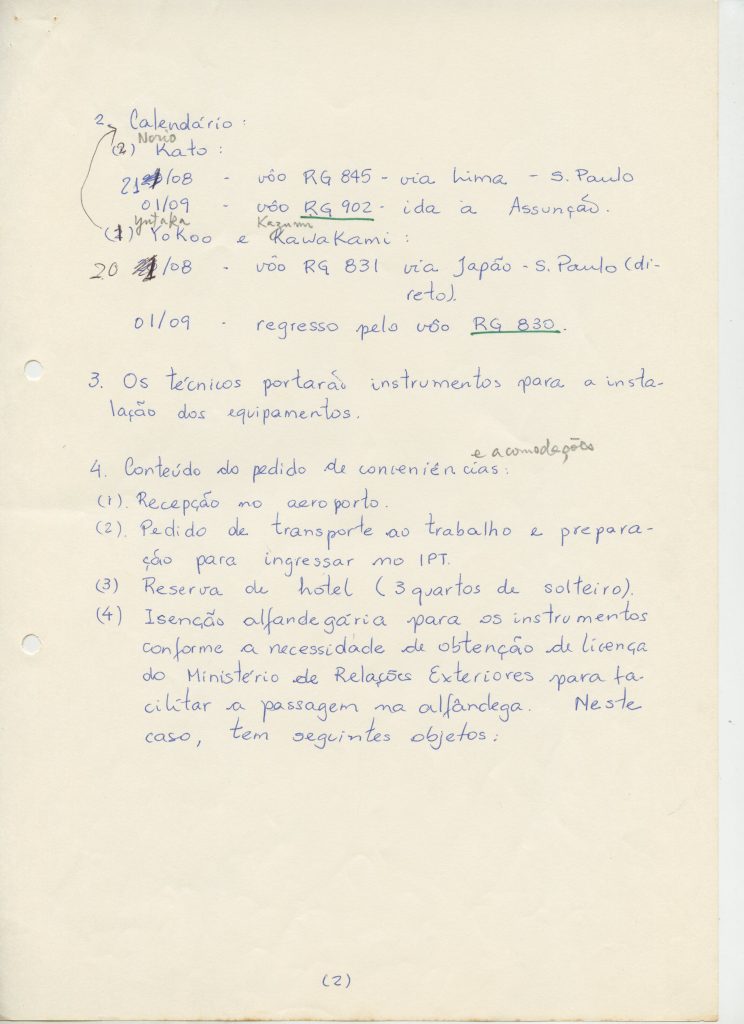 2. Calendário:
Norio
(2) Kato:
21/08 - vôo RG 845 - via Lima - S. Paulo
01/09 - vôo RG 902 - ida à Assunção.
Yutaka Kazumi
(1) Yokoo e Kawakami:
20/08 - vôo RG 831 via Japão - S. Paulo (di-
reto).
01/09 - regresso pelo vôo RG 830.
3. Os técnicos portarão instrumentos para a insta-
lação dos equipamentos.
e acomodações
4. Conteúdo do pedido de conveniências:
(1). Recepção no aeroporto.
(2). Pedido de transporte ao trabalho e prepara-
ção para ingressar no IPT.
(3) Reserva de hotel (3 quartos de solteiro).
(4) Isenção alfandegária para os instrumentos
conforme a necessidade de obtenção de licença
do Ministério de Relações Exteriores para fa-
cilitar a passagem na alfândega. Neste
caso, tem seguintes objetos:
(2)